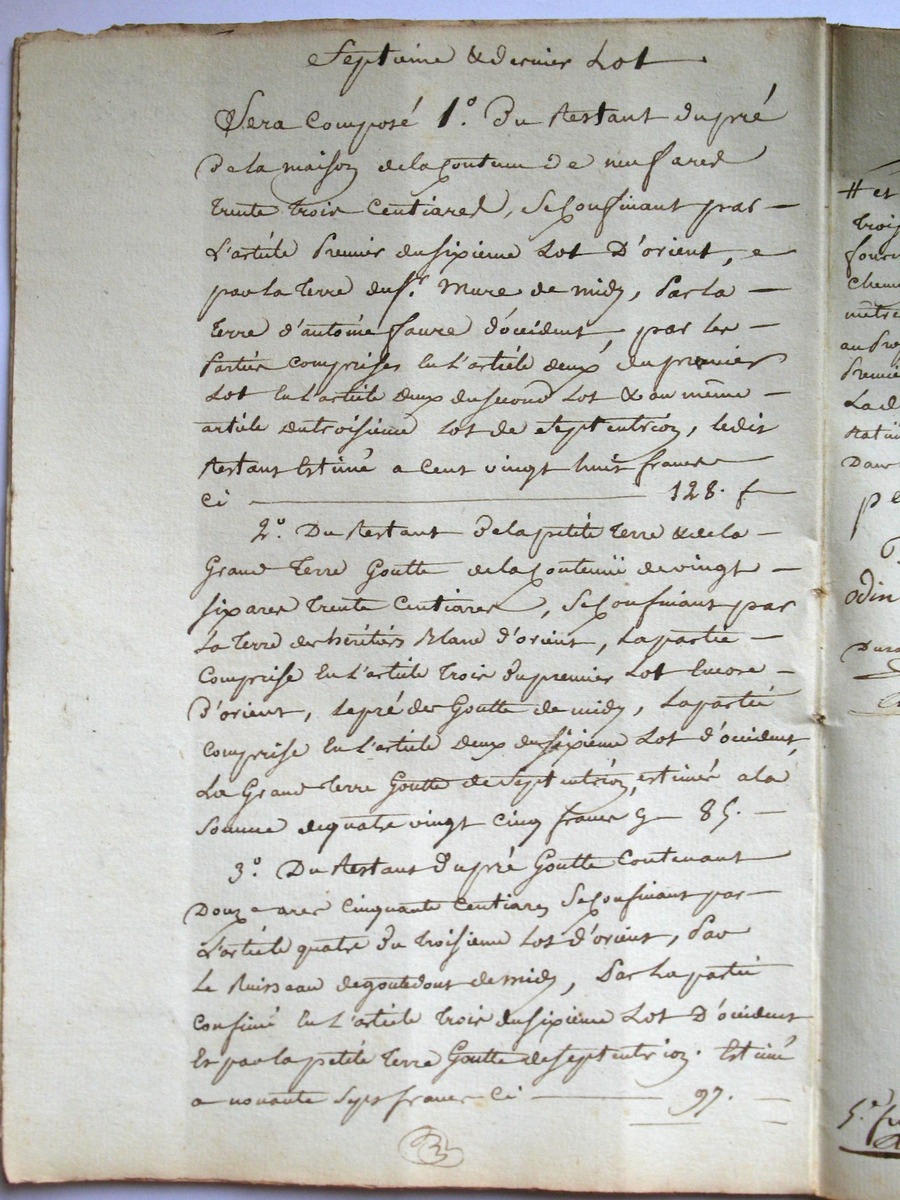 Septieme & dernier Lot
Sera Composé 1°. Du Restant du pré
De la maison de la Contenue de neuf ares
trente trois Centiares, Se Confinant par
L'article Premier du sixieme Lot D'orient, e
par la terre du S.r Mure de midy, Par la
terre d'antoine faure d'occident, par les
Parties comprises en L'article deux du premier
Lot en L'article deux du second Lot & au même
article du troisieme Lot de Septentrion, ledit
Restant Estimé a Cent vingt huit francs
Ci 128. f
2° Du Restant De la petite terre & de la
Grand terre Goutte de la Contenüe de vingt
six ares trente Centiares, Se Confinant par
La terre des héritiers Blanc d'orient, La partie
Comprise en L'article trois du premier Lot Encore
D'orient, le pré des Goutte de midy, La partie
comprise en L'article deux du sixieme Lot d'occident,
La Grand terre Goutte de Septentrion, estimés a la
Somme de quatre vingt Cinq francs Cy 85.
3° Du Restant Du pré Goutte Contenant
Douze ares Cinquante Centiares Se Confinant par
L'article quatre du troisieme Lot d'orient, Par
Le Ruisseau de goutedout de midy, Par La partie
Confiné en L'article trois du sixieme Lot D'occident
Et par la petite terre Goutte de Septentrion. Estimé
a nonante Sept francs Ci 97.
# et
trois
Chem
au pre
Premie
La d
Dans
odin
Dura